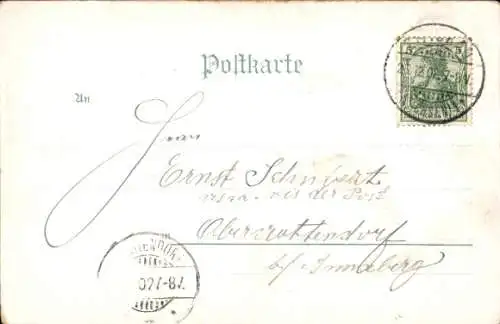 Postkarte
5 5
An
Herrn
Ernst Schubert
vis a vis der Post
Obercrottendorf
b/ Annaberg